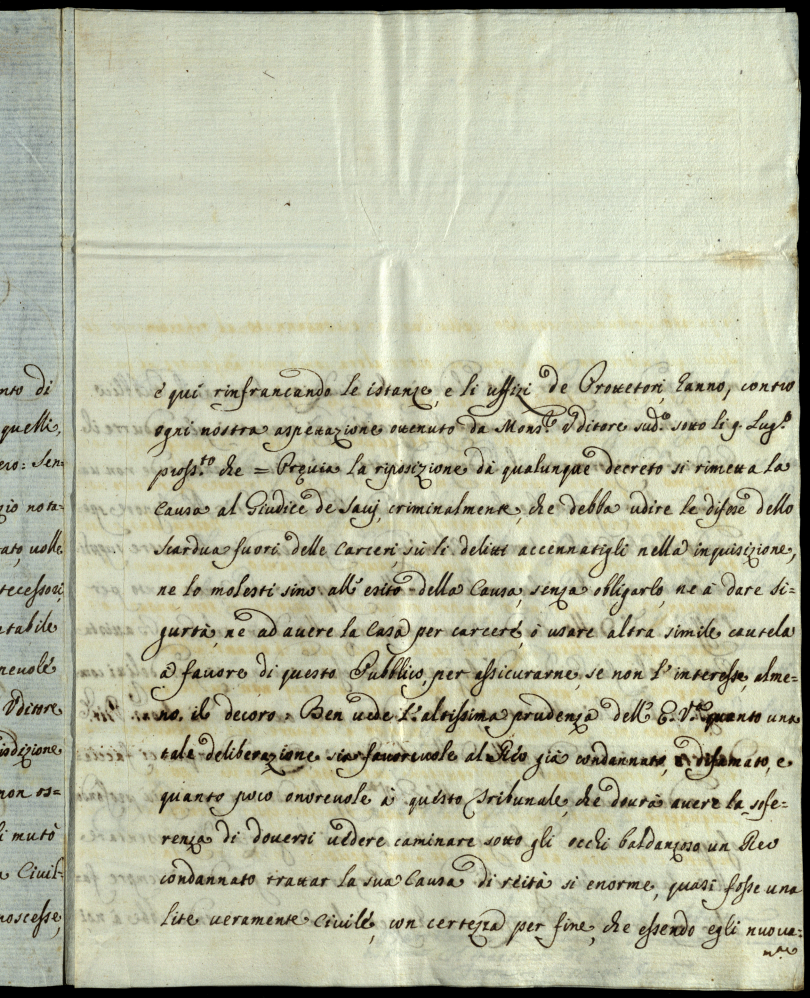 nto di
quelli,
ero: Sen=
zio nota=
ato, uolle
tecessori,
tabile
neuole
Vditore
isdizione
non os=
li mutò
a Ciuil=
noscesse,
è qui rinfrancando le istanze, e li uffizi de Prouetori, hanno, contro
ogni nostra aspettazione ottenuto da Mons.r Vditore sud.o sotto li 9. Lug.o
pross.to che = Preuia la riposizione dà qualunque decreto si rimetta la
Causa al Giudice de Sauj, criminalmente, che debba udire le difese dello
Scardua fuori delle Carceri, sù li delitti accennatigli nella inquisizione,
ne lo molesti sino all'esito della Causa, senza obligarlo, ne à dare si=
gurtà, nè ad auere la Casa per carcere, ò usare altra simile cautela
à fauore di questo Pubblico, per assicurarne, se non l'interesse, alme=
no, il decoro: Ben uede l'altissima prudenza dell'E. V.ra quanto una
tale deliberazione sia fauoreuole al Rèo già condannato, e disamato, e
quanto poco onoreuole à questo Tribunale, che dourà auere la sofe=
renza di douersi uedere caminare sotto gli occhi baldanzoso un Reo
condannato trattar la sua Causa di reità sì enorme, quasi fosse una
lite ueramente Ciuile, con certezza per fine, che essendo egli nuoua=
m.te